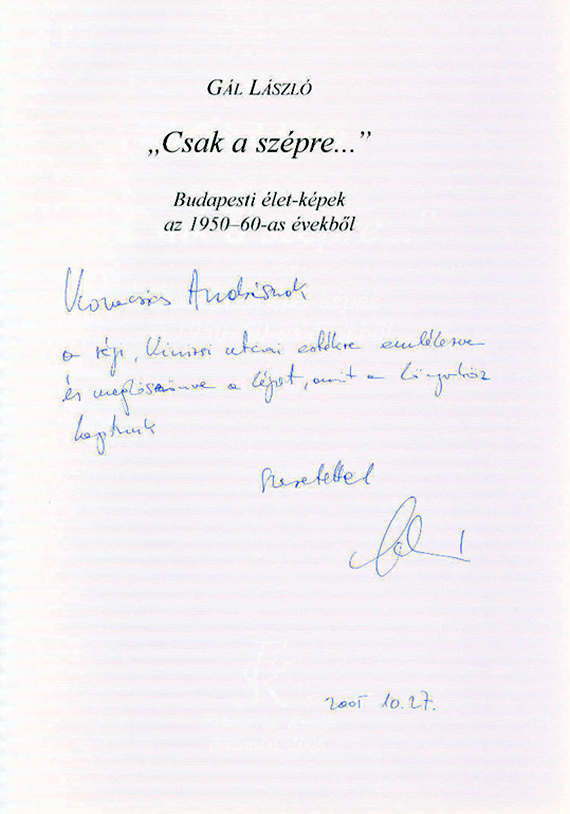 GÁL LÁSZLÓ
„Csak a szépre...”
Budapesti élet-képek
az 1950–60-as évekből
Kovacsics Andrásnak
a régi, Kinizsi utcai estékre emlékezve
és megköszönve a képet, amit a könyvhöz
kaptunk
Szeretettel
2005. 10. 27.